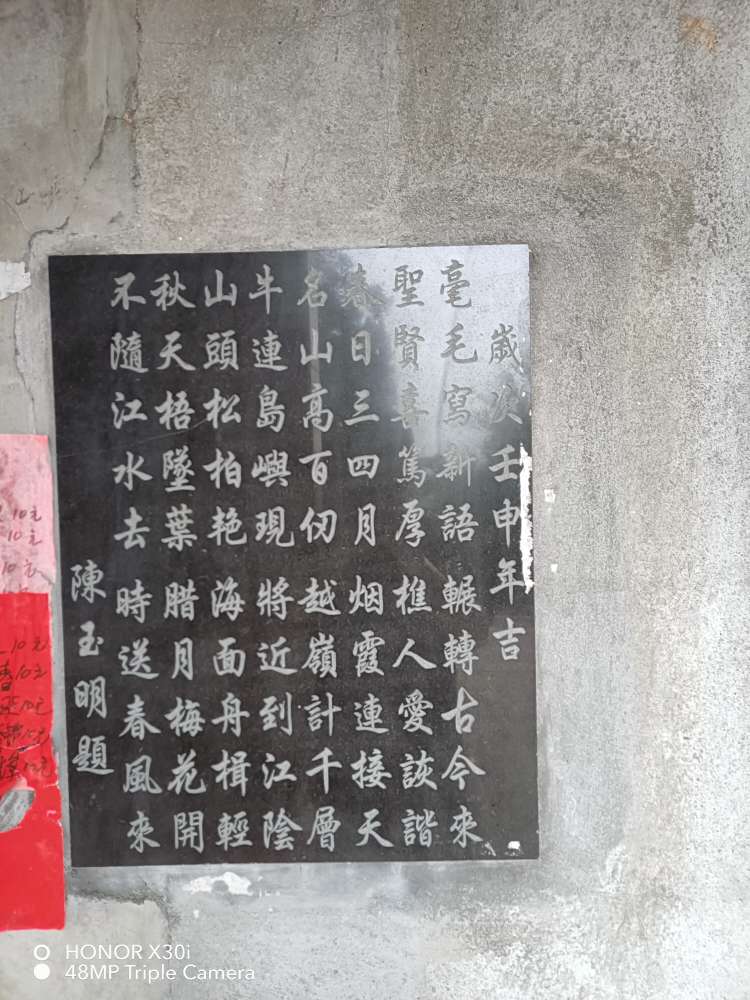 歲次壬申年吉
毫毛寫新語輾轉古今來
聖賢喜篤厚樵人愛詼諧
春日三四月烟霞連接天
名山高百仞越嶺計千層
牛連島嶼現將近到江陰
山頭松柏艳海面舟楫輕
秋天梧墜葉腊月梅花開
不隨江水去時送春風來
陳玉明題
10元
10元
10元
10元
春10元
10元
10元
10元
HONOR X30i
48MP Triple Camera